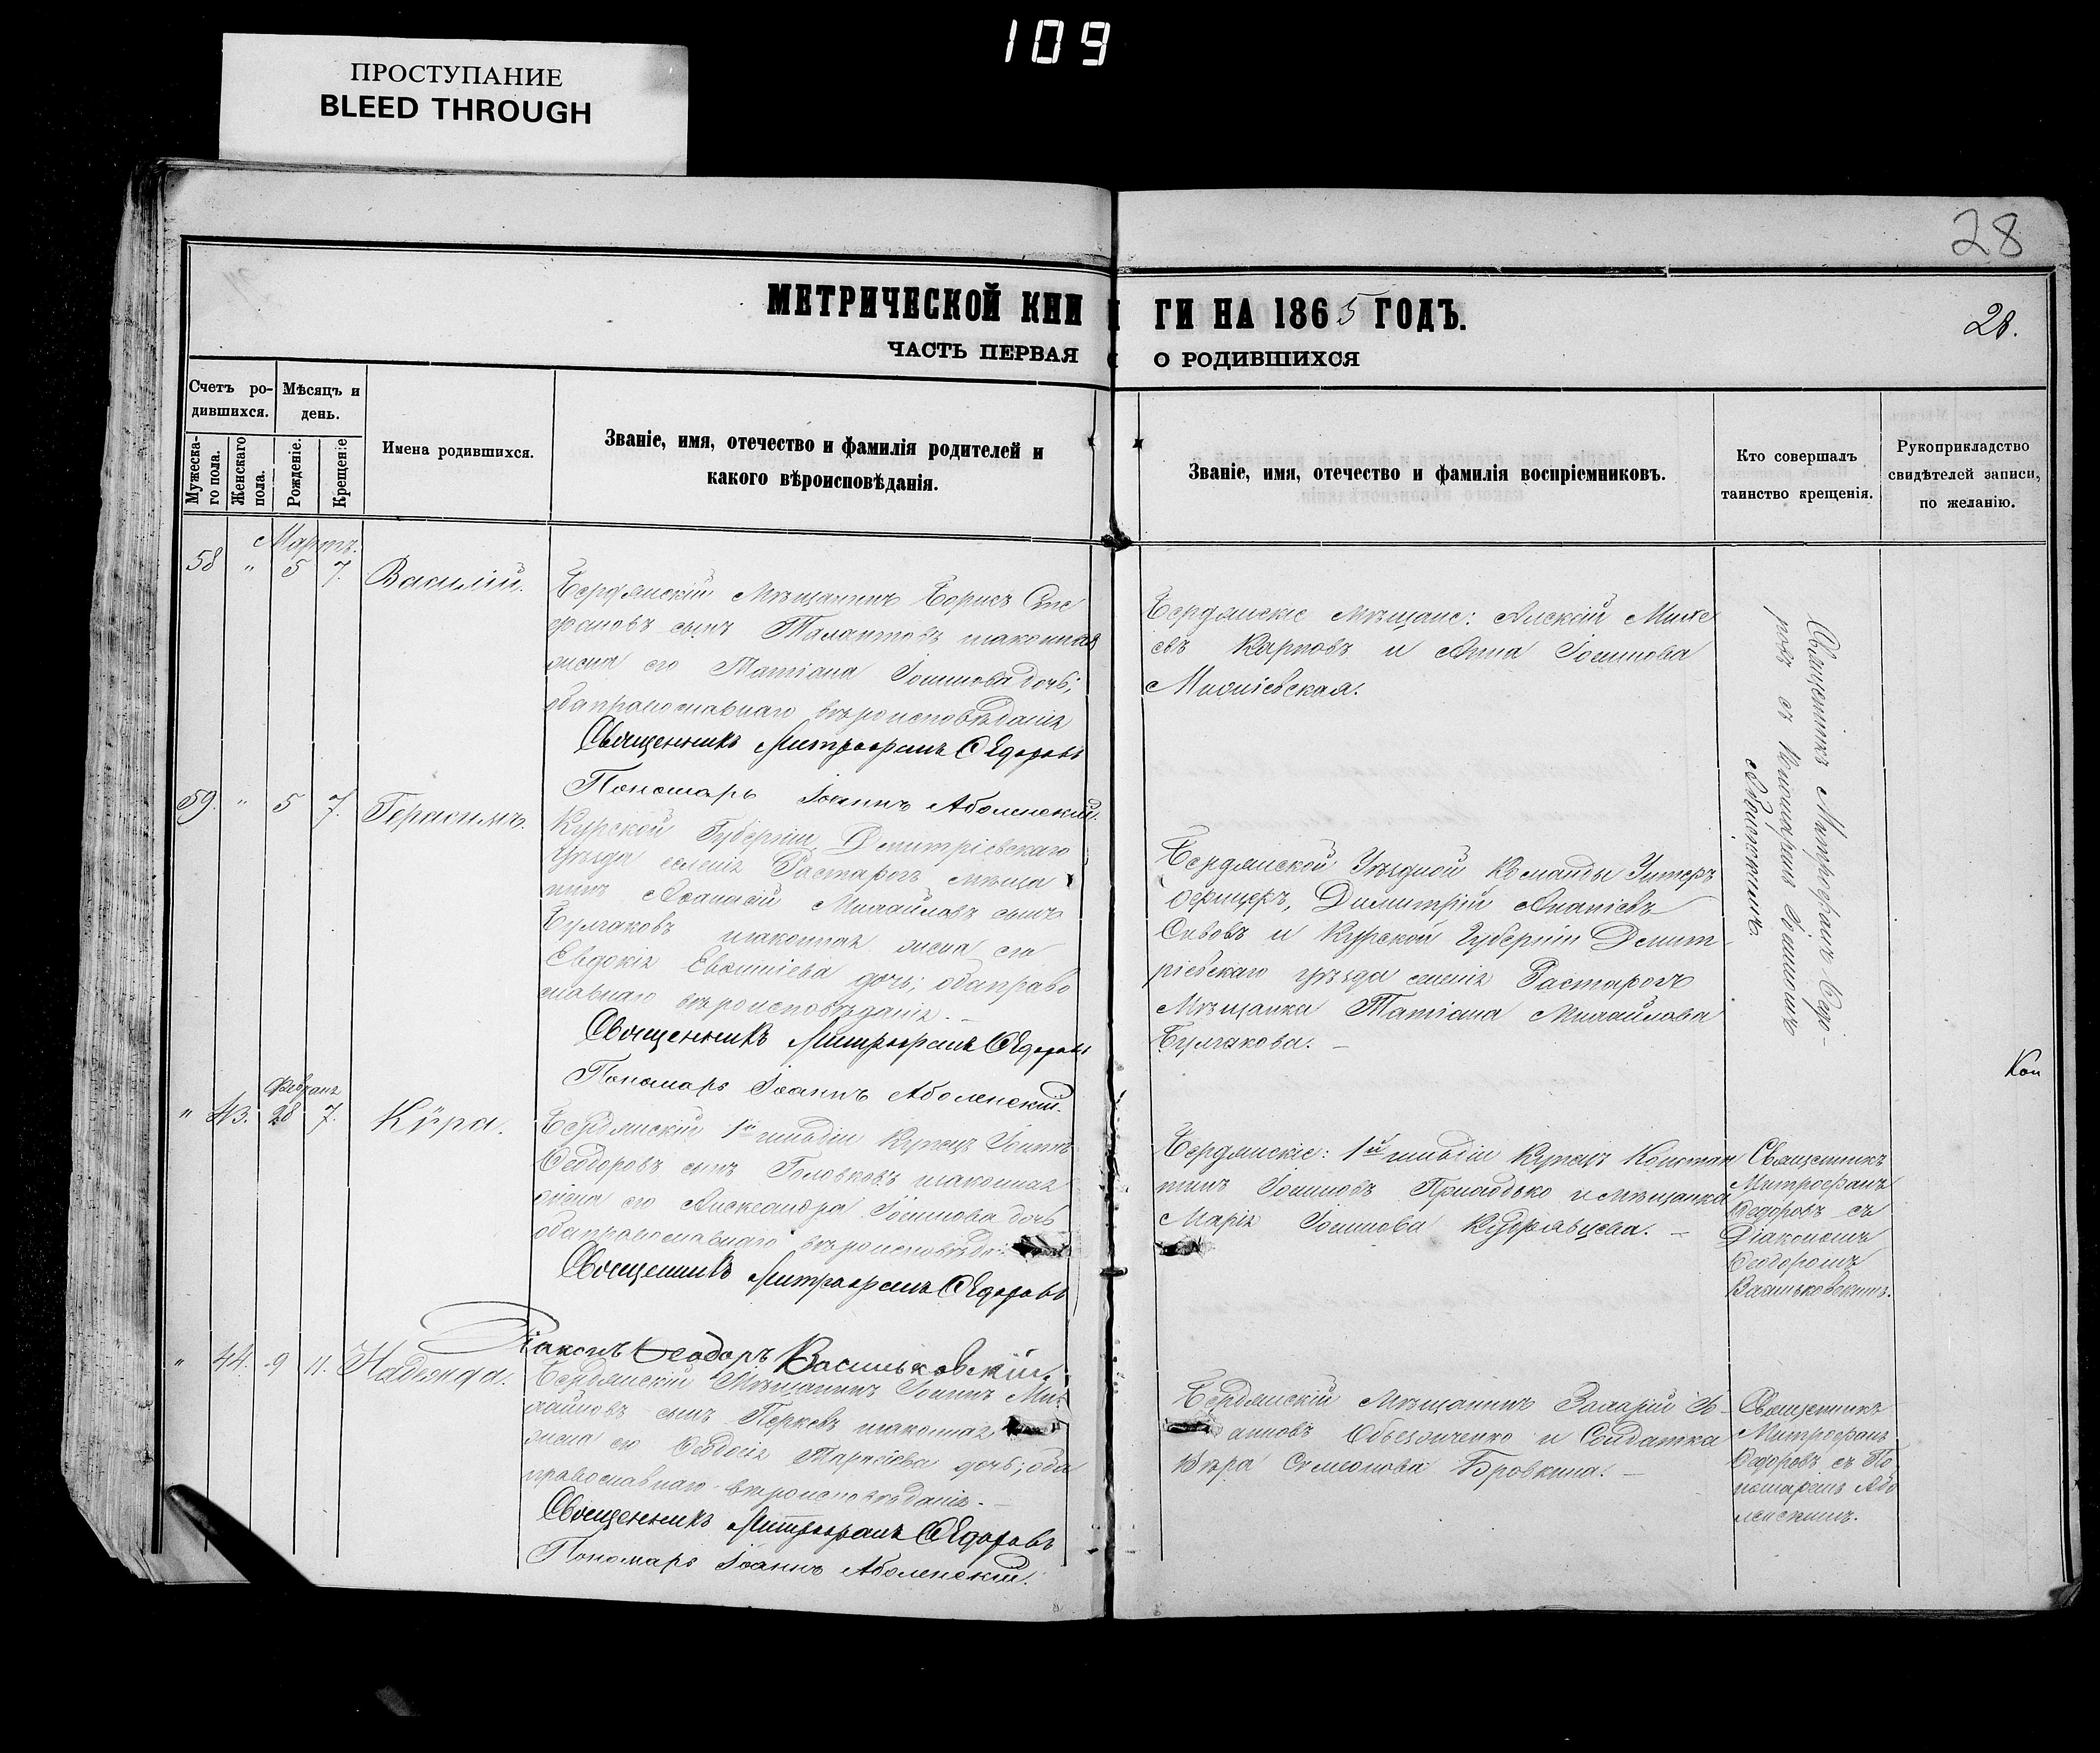 109
ПРОСТУПАНИЕ
BLEED THROUGH
28
МЕТРИЧЕСКОЙ КНИ ГИ НА 1865 ГОДЪ.
28.
ЧАСТЬ ПЕРВАЯ О РОДИВШИХСЯ
Счетъ ро-
дившихся.
Мужеска-
го пола.
Женскаго
пола.
Мѣсяцъ и
день.
Рожденіе.
Крещеніе
Имена родившихся.
Званіе, имя, отечество и фамилія родителей и
какого вѣроисповѣданія.
Званіе, имя, отечество и фамилія воспріемниковъ.
Кто совершалъ
таинство крещенія.
Рукоприкладство
свидѣтелей записи,
по желанію.
Мартъ.
58 " 5 7. Василій.
Бердянскій Мѣщанинъ Борисъ Сте
фановъ сынъ Талантовъ изаконная
жена его Татіана Іоаннова дочь;
оба православнаго вѣроисповѣданія
Священникъ Митрофанъ Ѳедоровъ
Пономарь Іоаннъ Аболенскій.
Бердянскіе Мѣщане: Алексій Михе
евъ Карповъ и Анна Іоаннова
Священникъ Митрофанъ Ѳедо-
ровъ съ Пономаремъ Іоанномъ
Аболенскимъ.
59. " 5 7. Герасимъ.
Курской Губерніи, Дмитріевскаго
уѣзда селенія Растарогъ мѣща
нинъ Аѳанасій Михайловъ сынъ
Булгаковъ изаконная жена его
Евдокія дочь; оба право
славнаго вѣроисповѣданія. —
Священникъ Митрофанъ Ѳедоровъ
Пономарь Іоаннъ Аболенскій.
Бердянской Уѣздной Команды Унтеръ
офицеръ, Димитрій Ананіевъ
и Курской Губерніи Дмит-
ріевскаго уѣзда селенія Растарогъ
Мѣщанка Татіана Михайлова
Булгакова. —
Кон
" 43. 28 7. Кѵра.
Бердянскій 1й гильдіи Купецъ Іоаннъ
Ѳеодоровъ сынъ Головковъ изаконная
жена его Александра Іоаннова дочь
оба православнаго
Священникъ Митрофанъ Ѳедоровъ
Діаконъ Ѳеодоръ Васильковскій.
Бердянскіе: 1й гильдіи Купецъ Констан
тинъ Іоанновъ Приходько и мѣщанка
Марія Іоаннова Кудрявцева. —
Священникъ
Митрофанъ
Ѳедоровъ съ
Діакономъ
Ѳеодоромъ
Васильковскимъ.
" 44. 9 11. Надежда.
Бердянскій Мѣщанинъ Іоаннъ Ми
хайловъ сынъ изаконная
жена его Ѳеодосія дочь; оба
православнаго вѣроисповѣданія. —
Священникъ Митрофанъ Ѳедоровъ
Пономарь Іоаннъ Аболенскій.
Бердянскій Мѣщанинъ Захарій
и Солдатка
Вѣра Семеонова Бровкина. —
Священникъ
Митрофанъ
Ѳедоровъ съ По
номаремъ Або
ленскимъ.